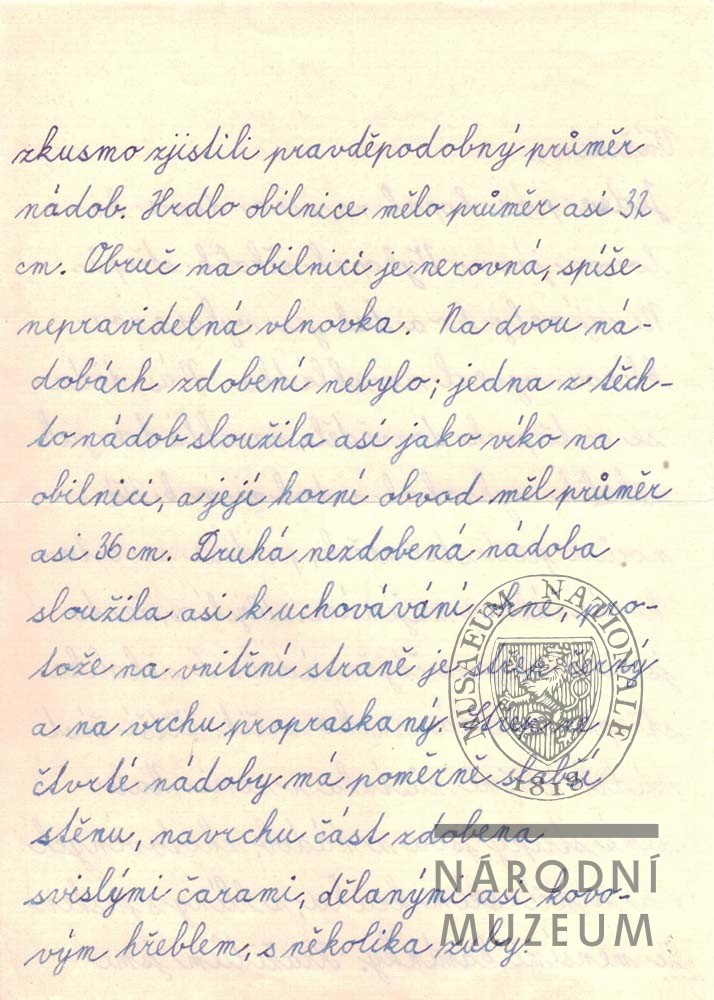 zkusmo zjistili pravděpodobný průměr
nádob. Hrdlo obilnice mělo průměr asi 32
cm. Obruč na obilnici je nerovná, spíše
nepravidelná vlnovka. Na dvou ná-
dobách zdobení nebylo; jedna z těch-
to nádob sloužila asi jako víko na
obilnici, a její horní obvod měl průměr
asi 36 cm. Druhá nezdobená nádoba
sloužila asi k uchovávání ohně, pro-
tože na vnitřní straně je střep černý
a na vrchu propraskaný. Střep ze
čtvrté nádoby má poměrně slabší
stěnu, navrchu část zdobena
svislými čarami, dělanými asi kovo-
vým hřeblem, s několika zuby.
MUSAEUM NATIONALE
1818
NÁRODNÍ
MUZEUM